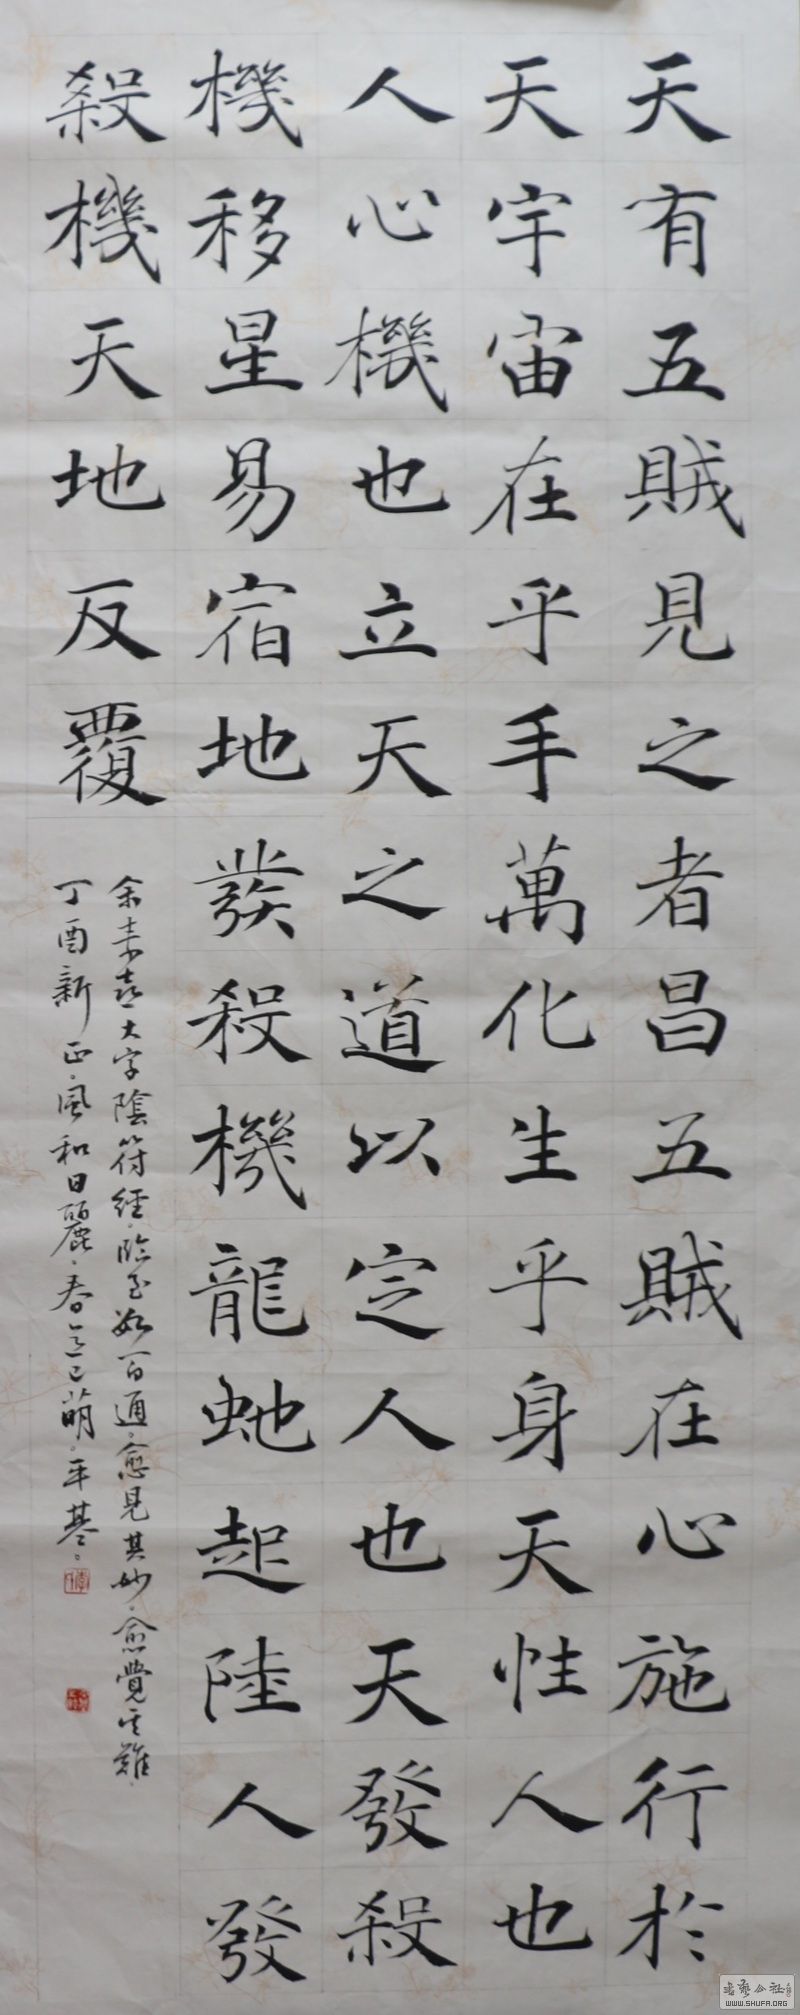 天有五賊見之者昌五賊在心施行於
天宇宙在乎手萬化生乎身天性人也
人心機也立天之道以定人也天發殺
機移星易宿地發殺機龍虵起陸人發
殺機天地反覆
余素喜大字陰符經臨至數百通愈見其妙愈覺其難
丁酉新正風和日麗春意已萌平基
書藝公社
WWW.SHUFA.ORG